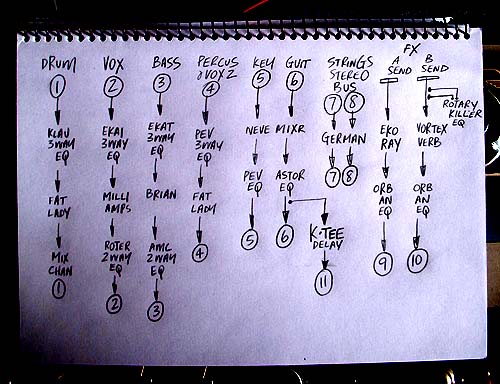 DRUM
1
KLAU
3 WAY
EQ
FAT
LADY
MIX
CHAN
1
VOX
2
EKAI
3WAY
EQ
MILLI
AMPS
ROTER
2 WAY
EQ
2
BASS
3
EKAT
3 WAY
EQ
BRIAN
AMC
2 WAY
EQ
3
PERCUS
& VOX 2
4
PEV
3 WAY
EQ
FAT
LADY
4
KEY
5
NEVE
PEV
EQ
5
GUIT
6
MIXR
ASTOR
EQ
6
K-TEE
DELAY
11
STRINGS
STEREO
BUS
7 8
GERMAN
7 8
FX
A
SEND
EKO
RAY
ORB
AN
EQ
9
B
SEND
ROTARY
KILLER
EQ
VORTEX
VERB
ORB
AN
EQ
10